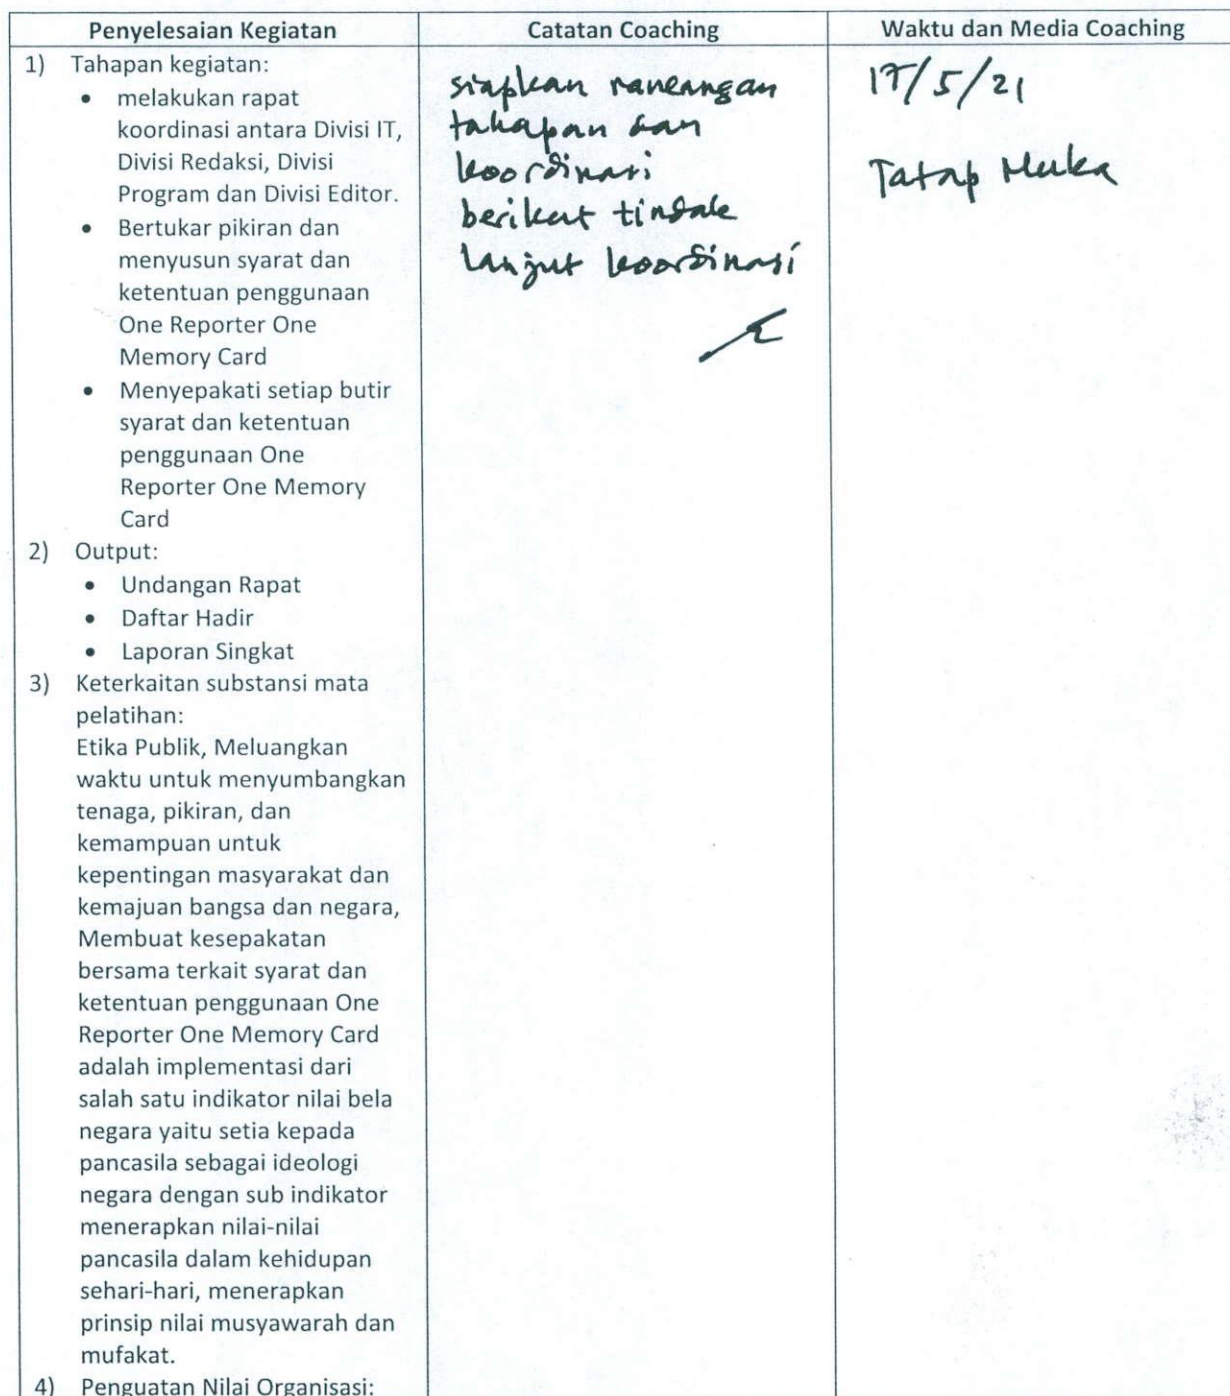 Penyelesaian Kegiatan
Catatan Coaching
Waktu dan Media Coaching
1) Tahapan kegiatan:
• melakukan rapat
koordinasi antara Divisi IT,
Divisi Redaksi, Divisi
Program dan Divisi Editor.
• Bertukar pikiran dan
menyusun syarat dan
ketentuan penggunaan
One Reporter One
Memory Card
• Menyepakati setiap butir
syarat dan ketentuan
penggunaan One
Reporter One Memory
Card
2) Output:
• Undangan Rapat
• Daftar Hadir
• Laporan Singkat
3) Keterkaitan substansi mata
pelatihan:
Etika Publik, Meluangkan
waktu untuk menyumbangkan
tenaga, pikiran, dan
kemampuan untuk
kepentingan masyarakat dan
kemajuan bangsa dan negara,
Membuat kesepakatan
bersama terkait syarat dan
ketentuan penggunaan One
Reporter One Memory Card
adalah implementasi dari
salah satu indikator nilai bela
negara yaitu setia kepada
pancasila sebagai ideologi
negara dengan sub indikator
menerapkan nilai-nilai
pancasila dalam kehidupan
sehari-hari, menerapkan
prinsip nilai musyawarah dan
mufakat.
4) Penguatan Nilai Organisasi:
siapkan rancangan
tahapan dan
koordinasi
berikut tindak
lanjut koordinasi
17/5/21
Tatap Muka